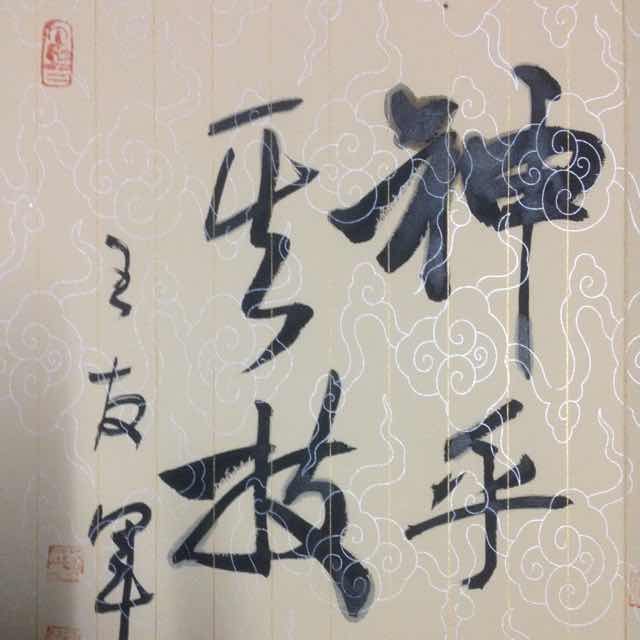 神乎
其技
王友军